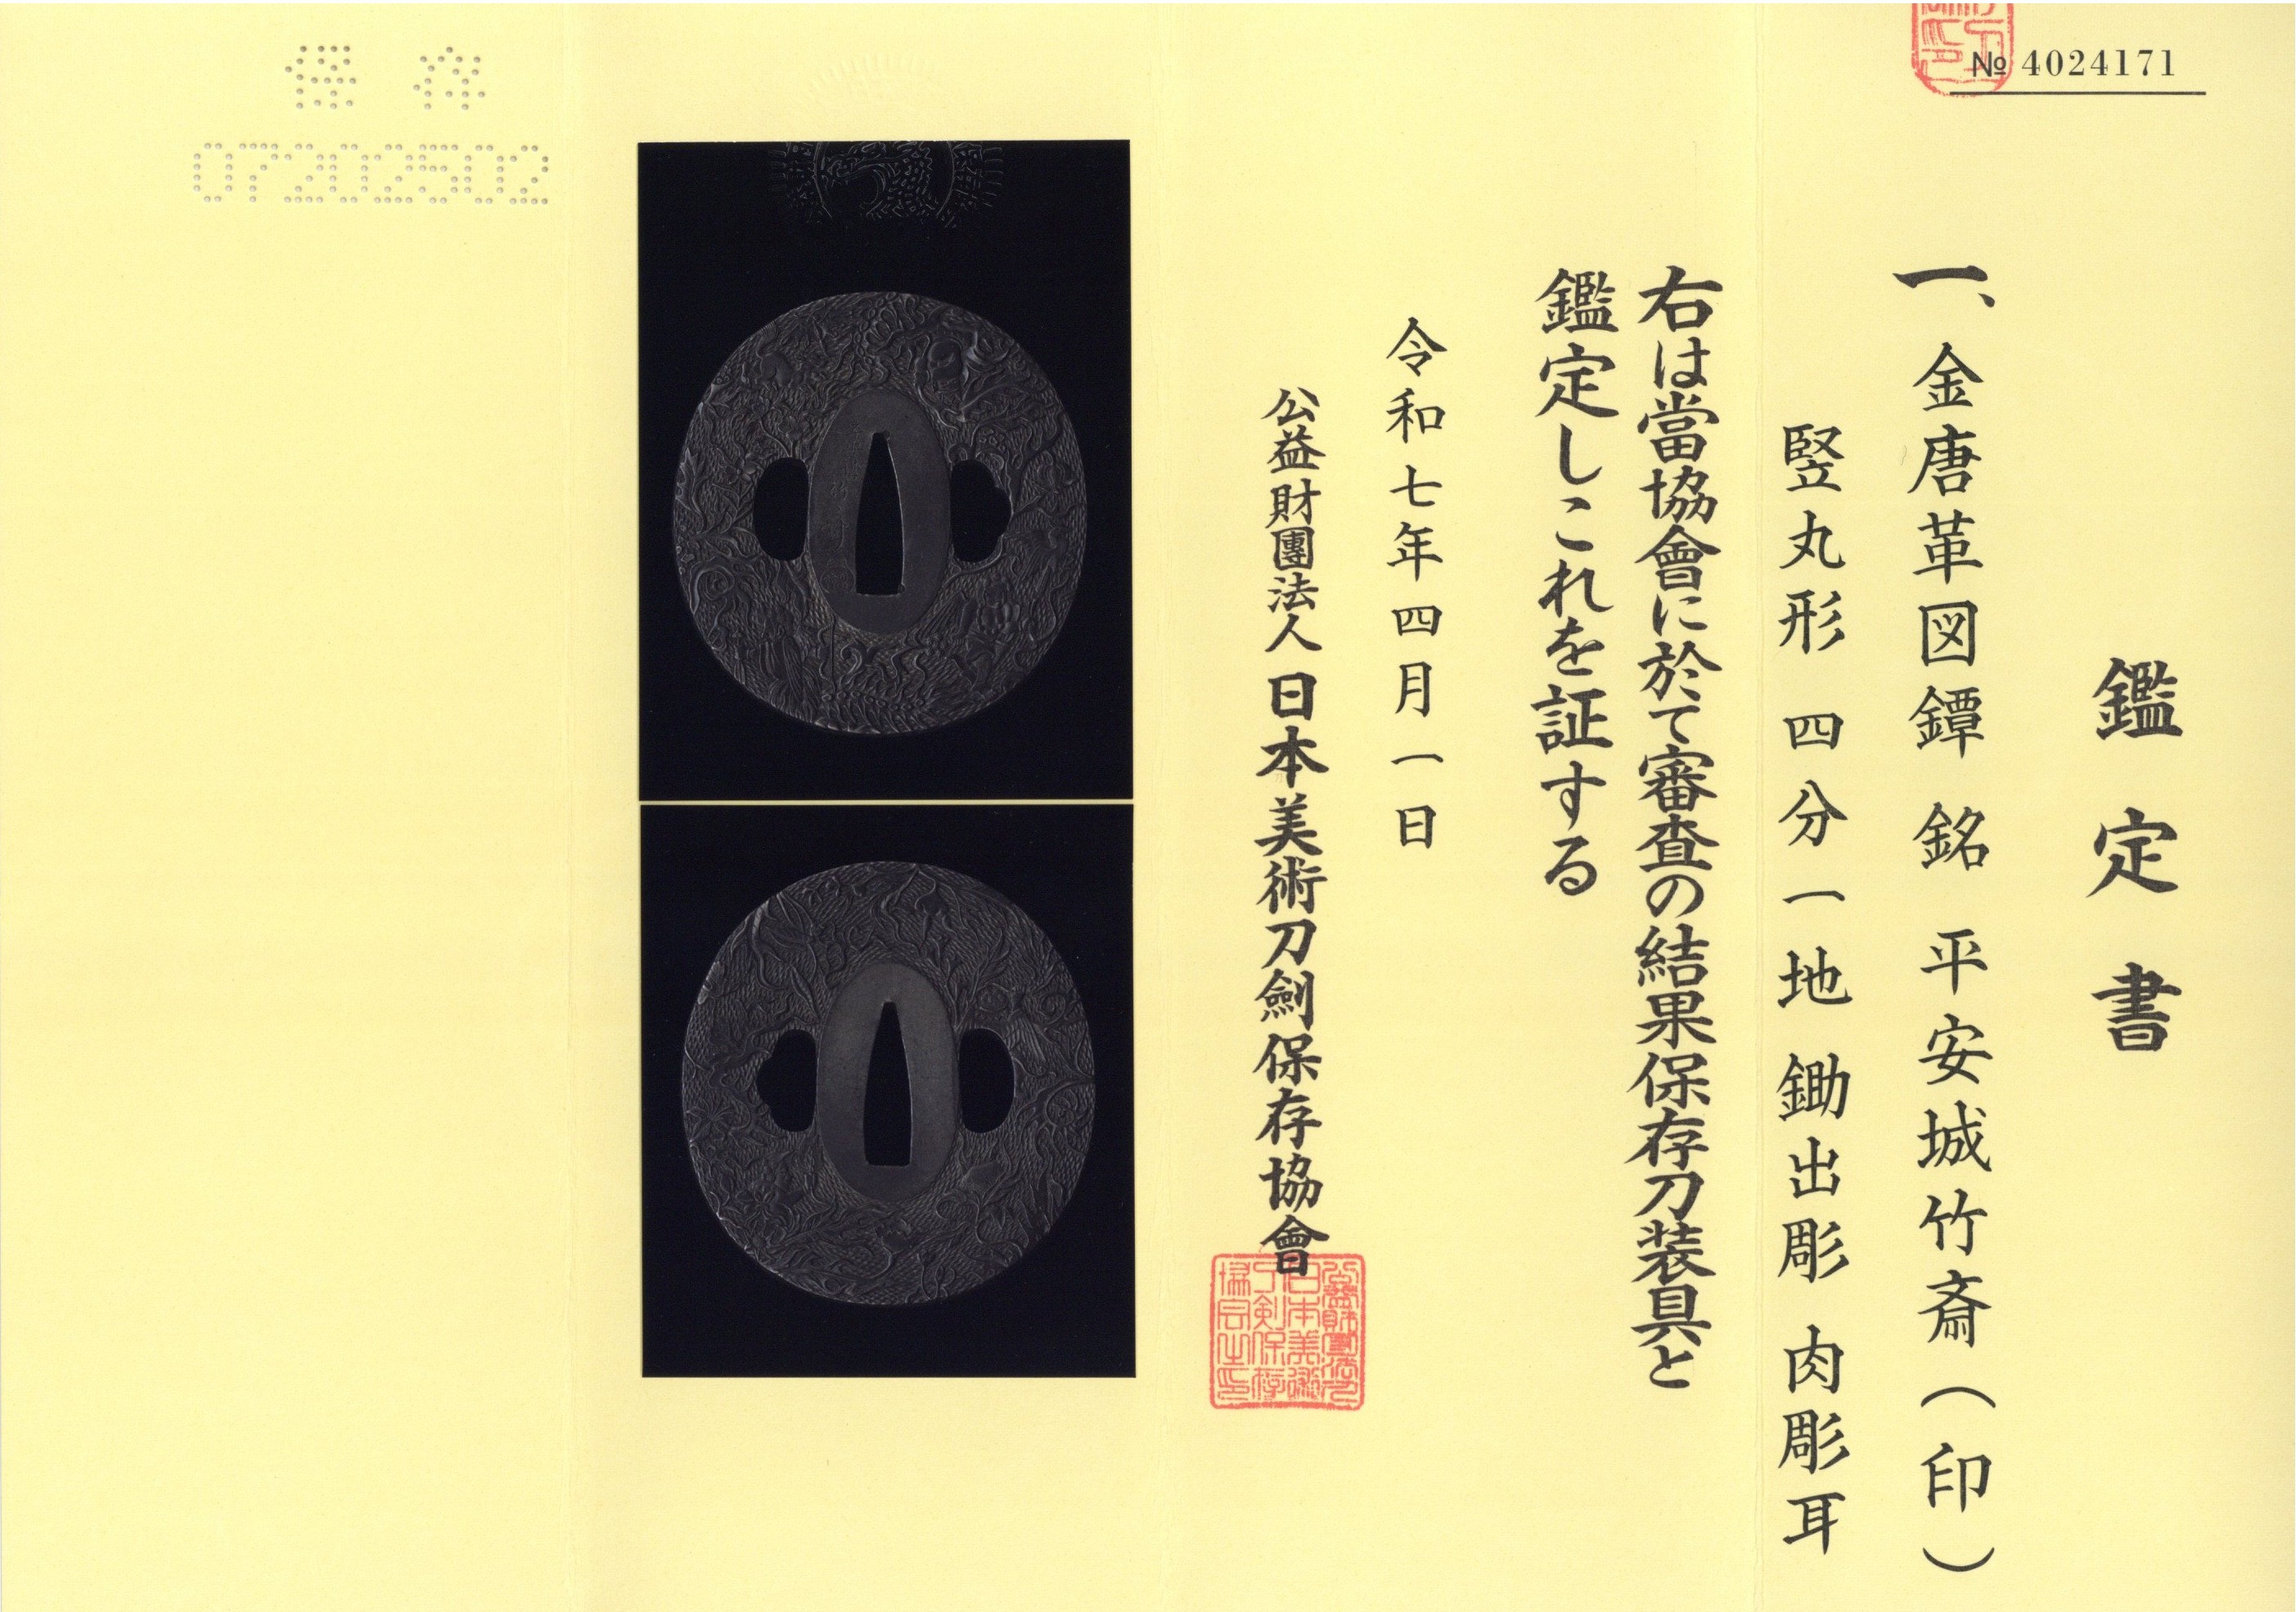 № 4024171
鑑定書
一、金唐革図鐔 銘 平安城竹斎（印）
竪丸形 四分一地 鋤出彫 肉彫耳
右は當協會に於て審査の結果保存刀装具と
鑑定しこれを証する
令和七年四月一日
公益財團法人 日本美術刀劍保存協會
保存
07202502